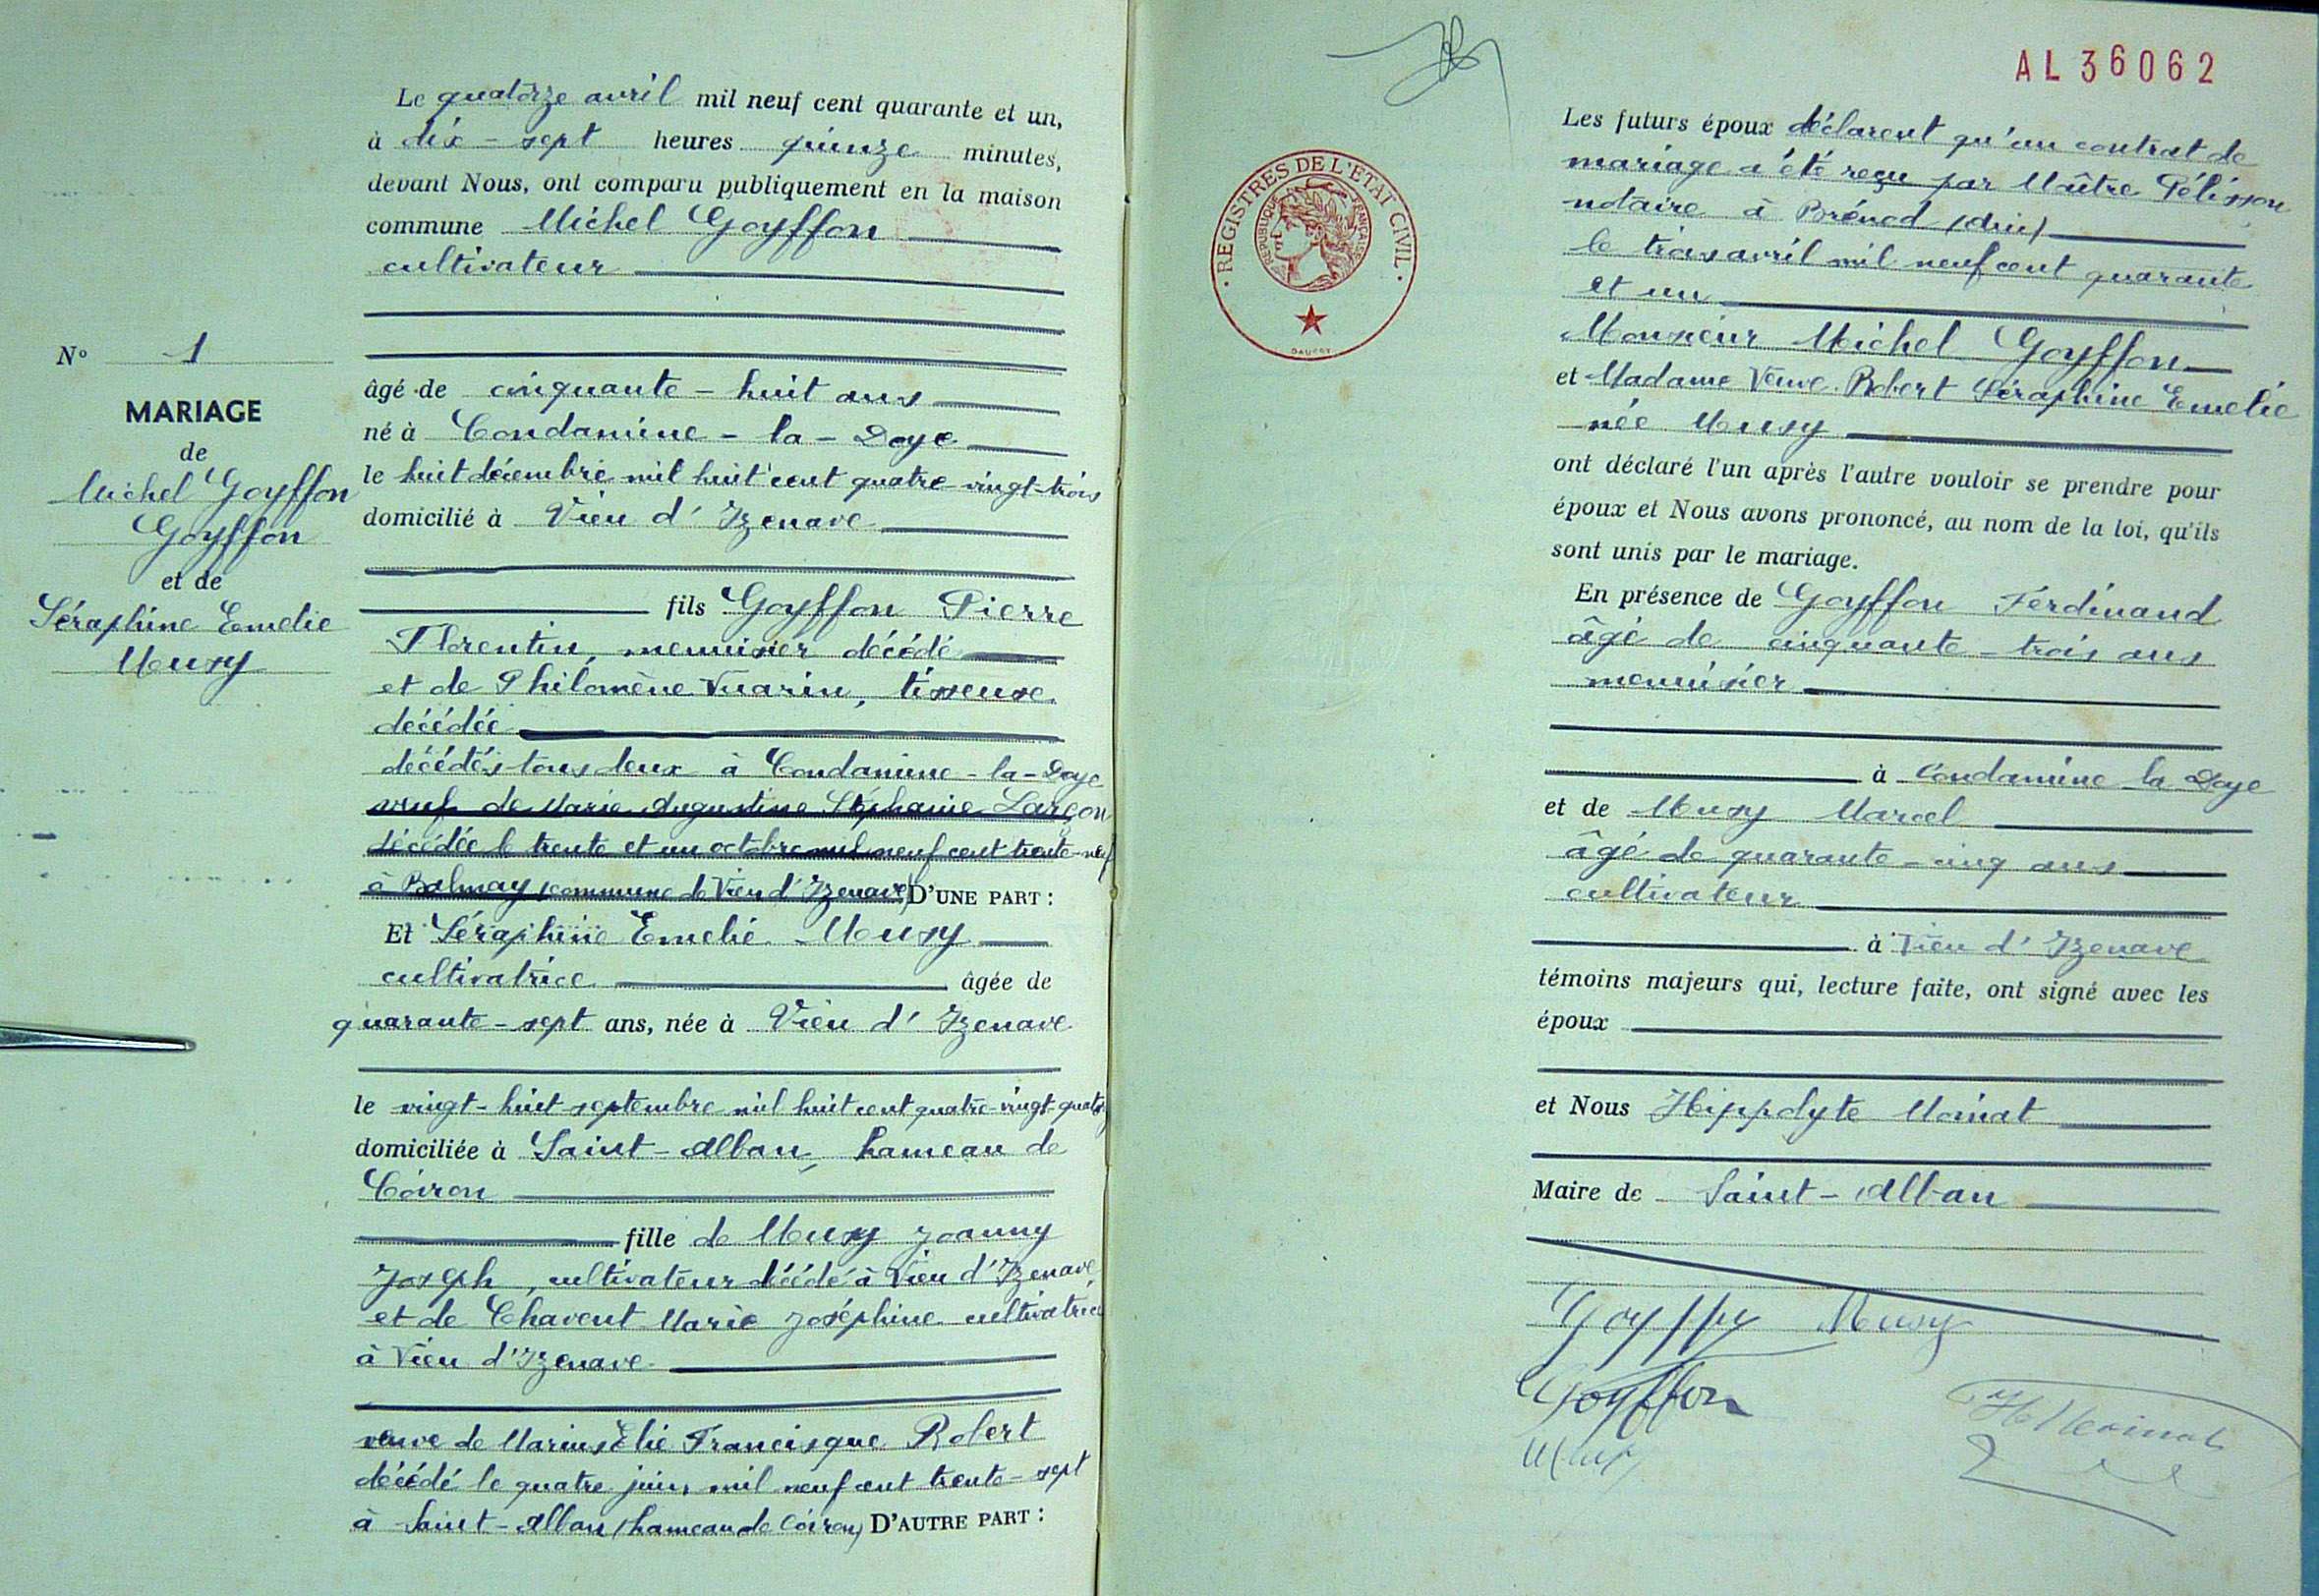 Le quatorze avril mil neuf cent quarante et un,
à dix-sept heures quinze minutes,
devant Nous, ont comparu publiquement en la maison
commune Michel Goyffon
cultivateur
âgé de cinquante-huit ans
né à Condamine-la-Doye
le huit décembre mil huit cent quatre-vingt-trois
domicilié à Vieu d'Izenave
fils Goyffon Pierre
Florentin, menuisier décédé
et de Philomène Vuarin, tisseuse
décédée
décédés tous deux à Condamine-la-Doye
veuf de Marie Augustine Stéphanie Larçon
décédée le trente et un octobre mil neuf cent trente-neuf
à Balmay (commune de Vieu d'Izenave) D'UNE PART :
Et Séraphine Emelie Musy
cultivatrice âgée de
quarante-sept ans, née à Vieu d'Izenave
le vingt-huit septembre mil huit cent quatre-vingt-quatorze
domiciliée à Saint-Alban, hameau de
Coiron
fille de Musy Joanny
Joseph, cultivateur décédé à Vieu d'Izenave
et de Chavent Marie Joséphine cultivatrice
à Vieu d'Izenave
veuve de Marius Elie Francisque Robert
décédé le quatre juin mil neuf cent trente-sept
à Saint-Alban (hameau de Coiron) D'AUTRE PART :
N° 1
MARIAGE
de
Michel Goyffon
Goyffon
et de
Séraphine Emelie
Musy
AL36062
· REGISTRES DE L'ÉTAT CIVIL ·
RÉPUBLIQUE FRANÇAISE
Les futurs époux déclarent qu'un contrat de
mariage a été reçu par Maître Pélisson
notaire à Brénod (Ain)
le trois avril mil neuf cent quarante
et un
Monsieur Michel Goyffon
et Madame Veuve Robert Séraphine Emelie
née Musy
ont déclaré l'un après l'autre vouloir se prendre pour
époux et Nous avons prononcé, au nom de la loi, qu'ils
sont unis par le mariage.
En présence de Goyffon Ferdinand
âgé de cinquante-trois ans
menuisier
à Condamine la Doye
et de Musy Marcel
âgé de quarante-cinq ans
cultivateur
à Vieu d'Izenave
témoins majeurs qui, lecture faite, ont signé avec les
époux
et Nous Hippolyte Morinat
Maire de Saint-Alban
Musy
Goyffon
Musy